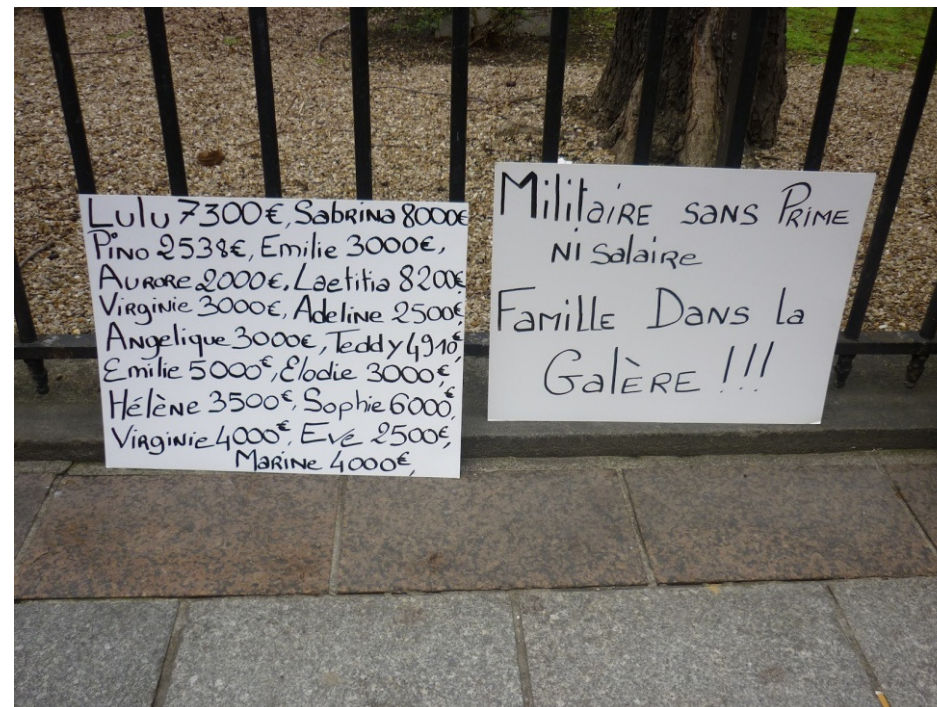 Lulu 7300€, Sabrina 8000€
Pino 2538€, Emilie 3000€,
Aurore 2000€, Laetitia 8200€,
Virginie 3000€, Adeline 2500€,
Angelique 3000€, Teddy 4910€,
Emilie 5000€, Elodie 3000€,
Hélène 3500€, Sophie 6000€,
Virginie 4000€, Eve 2500€,
Marine 4000€,
Militaire sans Prime
ni Salaire
Famille Dans la
Galère !!!